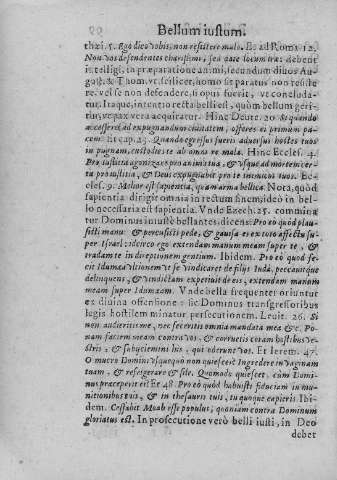 Bellum iustum.
thæi. 5. Ego dico vobis, non resistere malo. Et ad Roma. 12.
Non vos defendentes charissimi, sed date locum iræ: debent
intelligi, in præparatione animi, secundum diuos Au-
gust. & Thom. vt scilicet, homo sit paratus non resiste
re. vel se non defendere, si opus fuerit, vt concluda-
tur. Itaque, intentio recta bellicesi, quùm bellum geri-
tur, vt pax vera acquiratur. Hinc Deute. 20. & quando
accesseris ad expugnandum ciuitatem, offeres ei primum pa-
cem. Et cap. 23. Quando egressus fueris aduersus hostes tuos
in pugnam, custodies te ab omni re mala. Hinc Eccles. 4.
Pro iustitia agonizare pro anima tua, & vsque ad mortem cer-
ta pro iustitia, & Deus expugnabit pro te inimicos tuos. Ec
cles. 9. Melior est sapientia, quam arma bellica. Nota, quòd
sapientia dirigit omnia in rectum finem, ideò in bel-
lo necessaria est sapientia. Vnde Ezech. 25. commina
tur Dominus iniustè bellantes, dicens: Pro eo quòd plau-
sisti manu & percusisti pede, & gauisa es ex toto affectu su-
per Israel: idcirco ego extendam manum meam super te, &
tradam te in direptionem gentium. Ibidem. Pro eo quòd fe-
cit Idumæa vltionem vt se vindicaret de filijs Iuda, peccauitque
delinquens, & vindictam expetiuit de eis, extendam manum
meam super Idumæam. Vnde bella frequenter oriuntur
ex diuina offensione: sic Dominus transgressoribus
legis hostilem minatur persecutionem. Leuit. 26. Si
non audieritis me, nec feceritis omnia mandata mea &c. Po-
nam faciem meam contra vos, & corruetis coram hostibus ve-
stris, & subijciemini his, qui oderunt vos. Et Ierem. 47.
O mucro Domini vsquequò non quiesces? Ingredere in vaginam
tuam, & refrigerare & sile. Quomodo quiescet, cùm Domi-
nus præceperit ei? Et 48. Pro eò quòd habuisti fiduciam in mu-
nitionibus tuis, & in thesauris tuis, tu quoque capieris. Ibi-
dem. Cessabit Moab esse populus, quoniam contra Dominum
gloriatus est. In prosecutione verò belli iusti, in Deo
debet